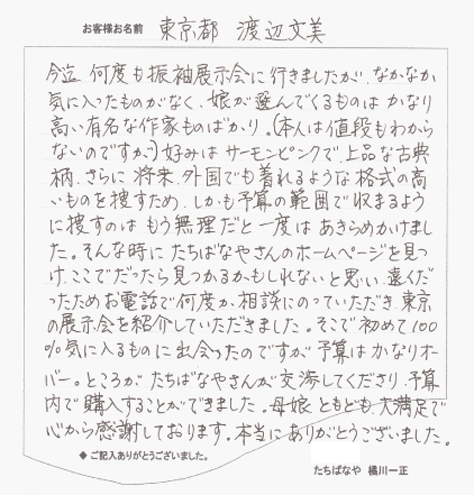 お客様お名前 東京都 渡辺文美
今迄 何度も振袖展示会に行きましたが、なかなか
気に入ったものがなく、娘が選んでくるものは かなり
高い有名な作家ものばかり。(本人は値段もわから
ないのですが)好みは サーモンピンクで、上品な古典
柄、さらに 将来、外国でも着れるような 格式の高
いものを捜すため、しかも予算の範囲で 収まるよう
に捜すのは もう無理だと一度は あきらめかけまし
た。そんな時に たちばなやさんのホームページを見つ
け、ここでだったら見つかるかもしれないと思い、遠くだ
ったため お電話で何度か、相談にのっていただき、東京
の展示会を紹介していただきました。そこで 初めて100
%気に入るものに出会ったのですが 予算はかなりオー
バー。ところが たちばなやさんが交渉してくださり、予算
内で購入することができました。母娘ともども、大満足で
心から感謝しております。本当に ありがとうございました。
◆ ご記入ありがとうございました。
たちばなや 橘川一正